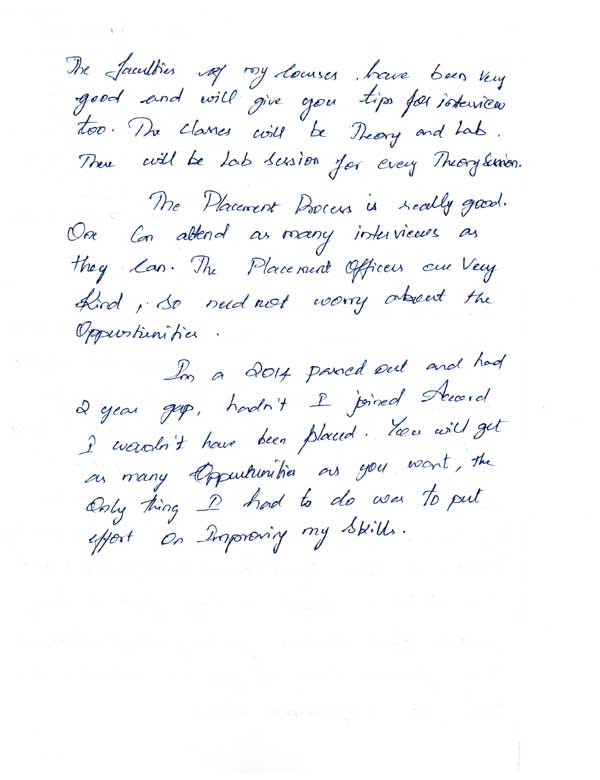 The faculties of my courses have been very
good and will give you tips for interview
too. The classes will be Theory and Lab.
There will be Lab session for every Theory Session.
The Placement Process is really good.
One Can attend as many interviews as
they Can. The Placement Officers are Very
Kind, so need not worry about the
Oppurtunities.
I'm a 2014 passed out and had
2 year gap, hadn't I joined Accord
I wouldn't have been placed. You will get
as many Oppurtunities as you want, the
Only thing I had to do was to put
effort on Improving my Skills.